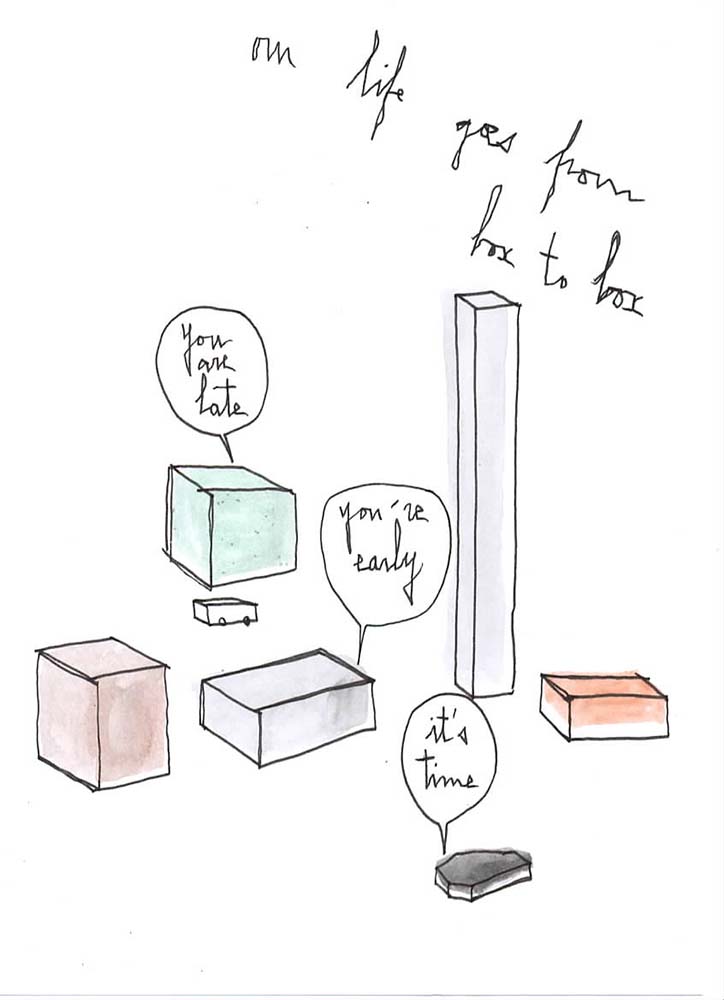 our life goes from
box to box
you
are
late
you're
early
it's
time